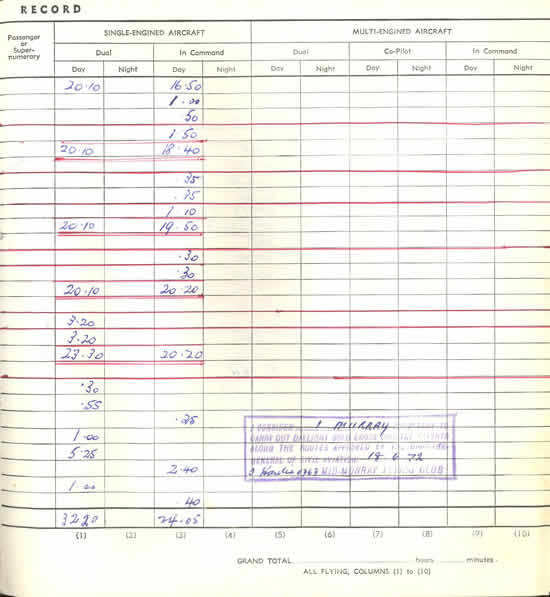 RECORD
Passenger or Super-numerary
SINGLE-ENGINED AIRCRAFT MULTI-ENGINED AIRCRAFT
Dual In Command Dual Co-Pilot In Command
Day Night Day Night Day Night Day Night Day Night
20.10 16.50
1.00
.50
1 50
20.10 18.40
.35
.35
1 10
20.10 19.50
.30
.30
20.10 20.20
3.20
3.20
23.30 20.20
.30
.55
.25
I CONSIDER I MURRAY COMPETENT TO
1.00
CARRY OUT DAYLIGHT SOLO CROSS COUNTRY FLIGHTS
5.25
ALONG THE ROUTES APPROVED BY THE DIRECTOR-
GENERAL OF CIVIL AVIATION 18 6 72
2.40
MID-MURRAY FLYING CLUB
1.00
.40
32 20 24.05
(1) (2) (3) (4) (5) (6) (7) (8) (9) (10)
GRAND TOTAL hours minutes.
ALL FLYING, COLUMNS (1) to (10)